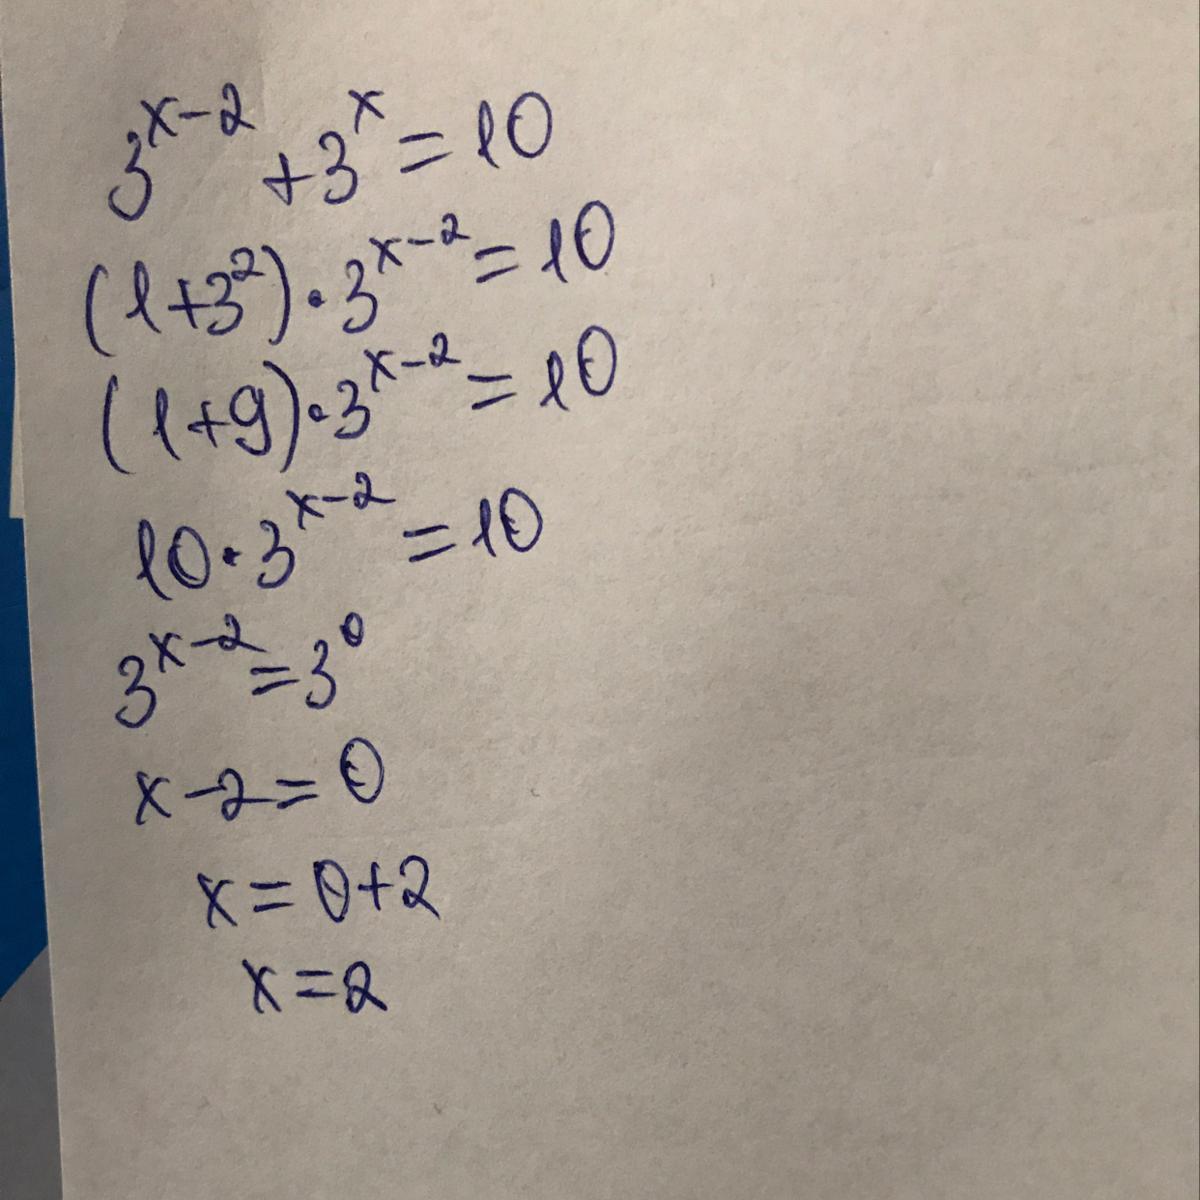 3^{x-2} + 3^x = 10
(1+3^2)·3^{x-2} = 10
(1+9)·3^{x-2} = 10
10·3^{x-2} = 10
3^{x-2} = 3^0
x-2 = 0
x = 0+2
x = 2